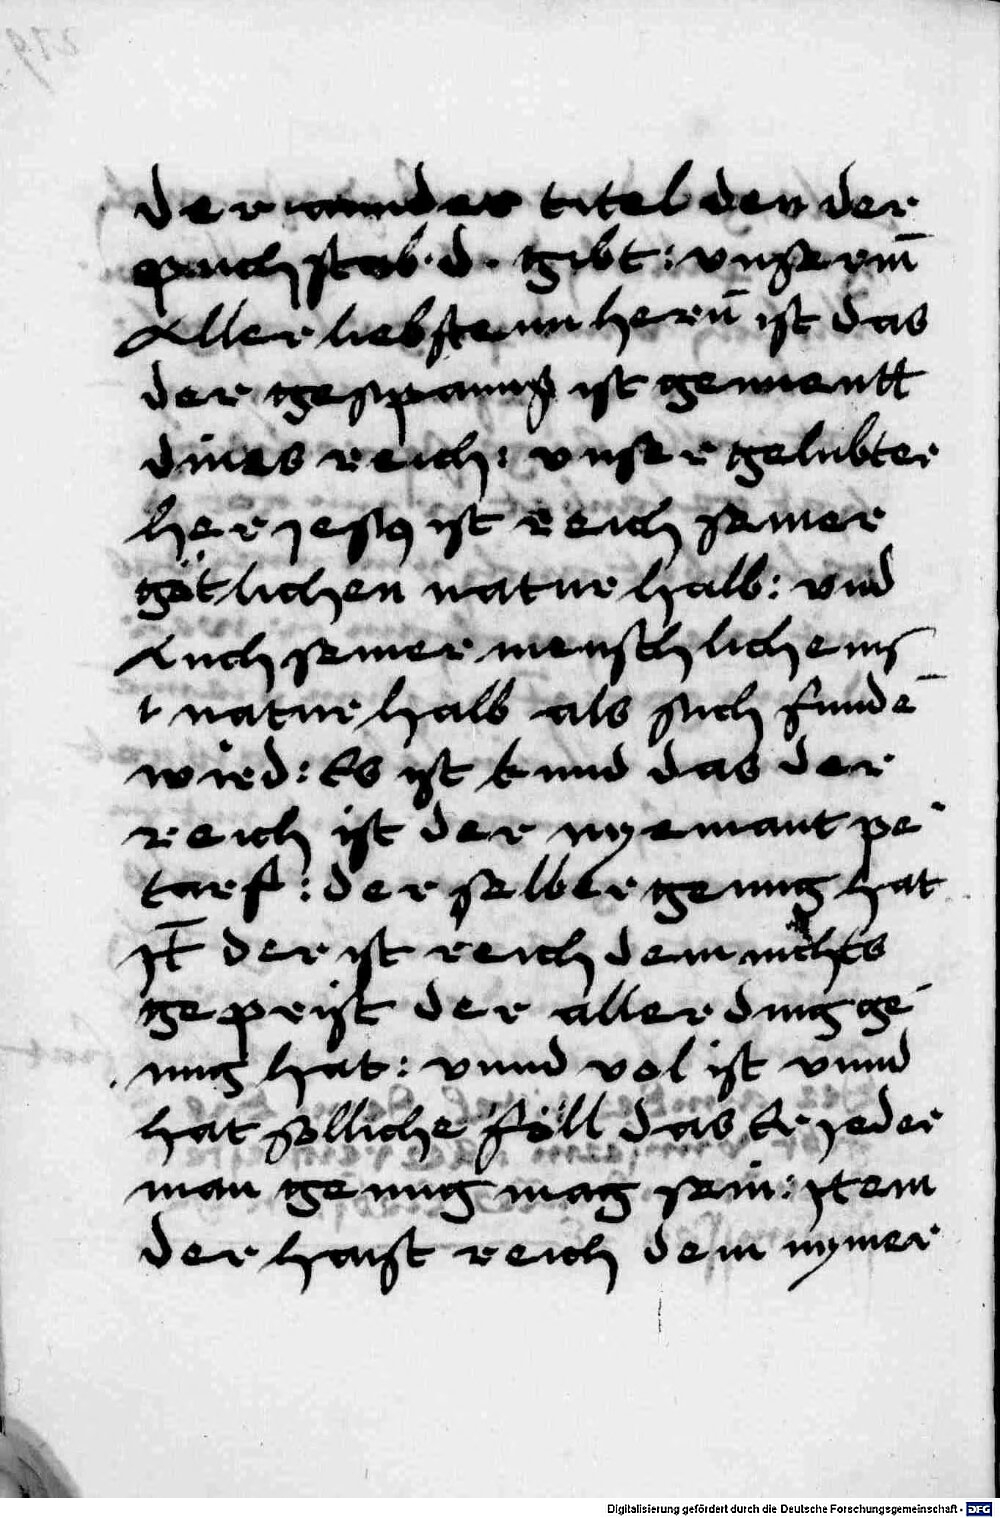 der annder titel den der
puchstab · d · gibt : vnserm̄
Allerliebstenn hern̄ ist das
der gespannß ist gennentt
dines reich : vnser geliebter
her jesꝰ ist reich seiner
götlichen natur halb : vnd
Auch seiner menschlichenn
t natur halb als such funde̅
wird : Es ist kund das der
reich ist der nyemant pe
tarf : der selber genug hat
Jt̅ der ist reich dem nichts
geprist der aller ding ge
nug hat : vnnd vol ist vnnd
hat solliche föll das Er jeder
man genug mag sein : jtem
der haist reich dem nymer
Digitalisierung gefördert durch die Deutsche Forschungsgemeinschaft - DFG